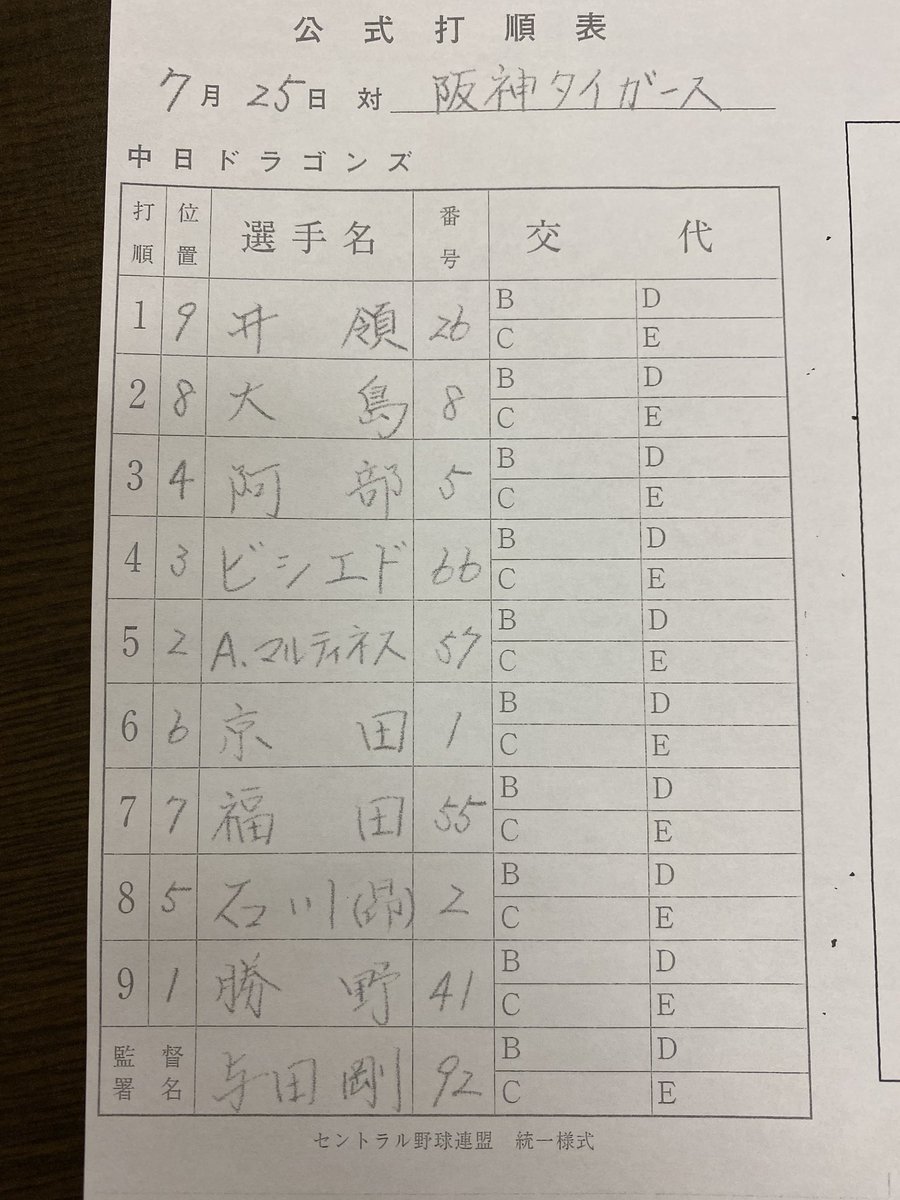 公式打順表
7月25日 対 阪神タイガース
中日ドラゴンズ
打順 位置 選手名 番号 交代
1 9 井領 26 B D
C E
2 8 大島 8 B D
C E
3 4 阿部 5 B D
C E
4 3 ビシエド 66 B D
C E
5 2 A.マルティネス 57 B D
C E
6 6 京田 1 B D
C E
7 7 福田 55 B D
C E
8 5 石川(昂) 2 B D
C E
9 1 勝野 41 B D
C E
監督署名 与田剛 92 B D
C E
セントラル野球連盟 統一様式